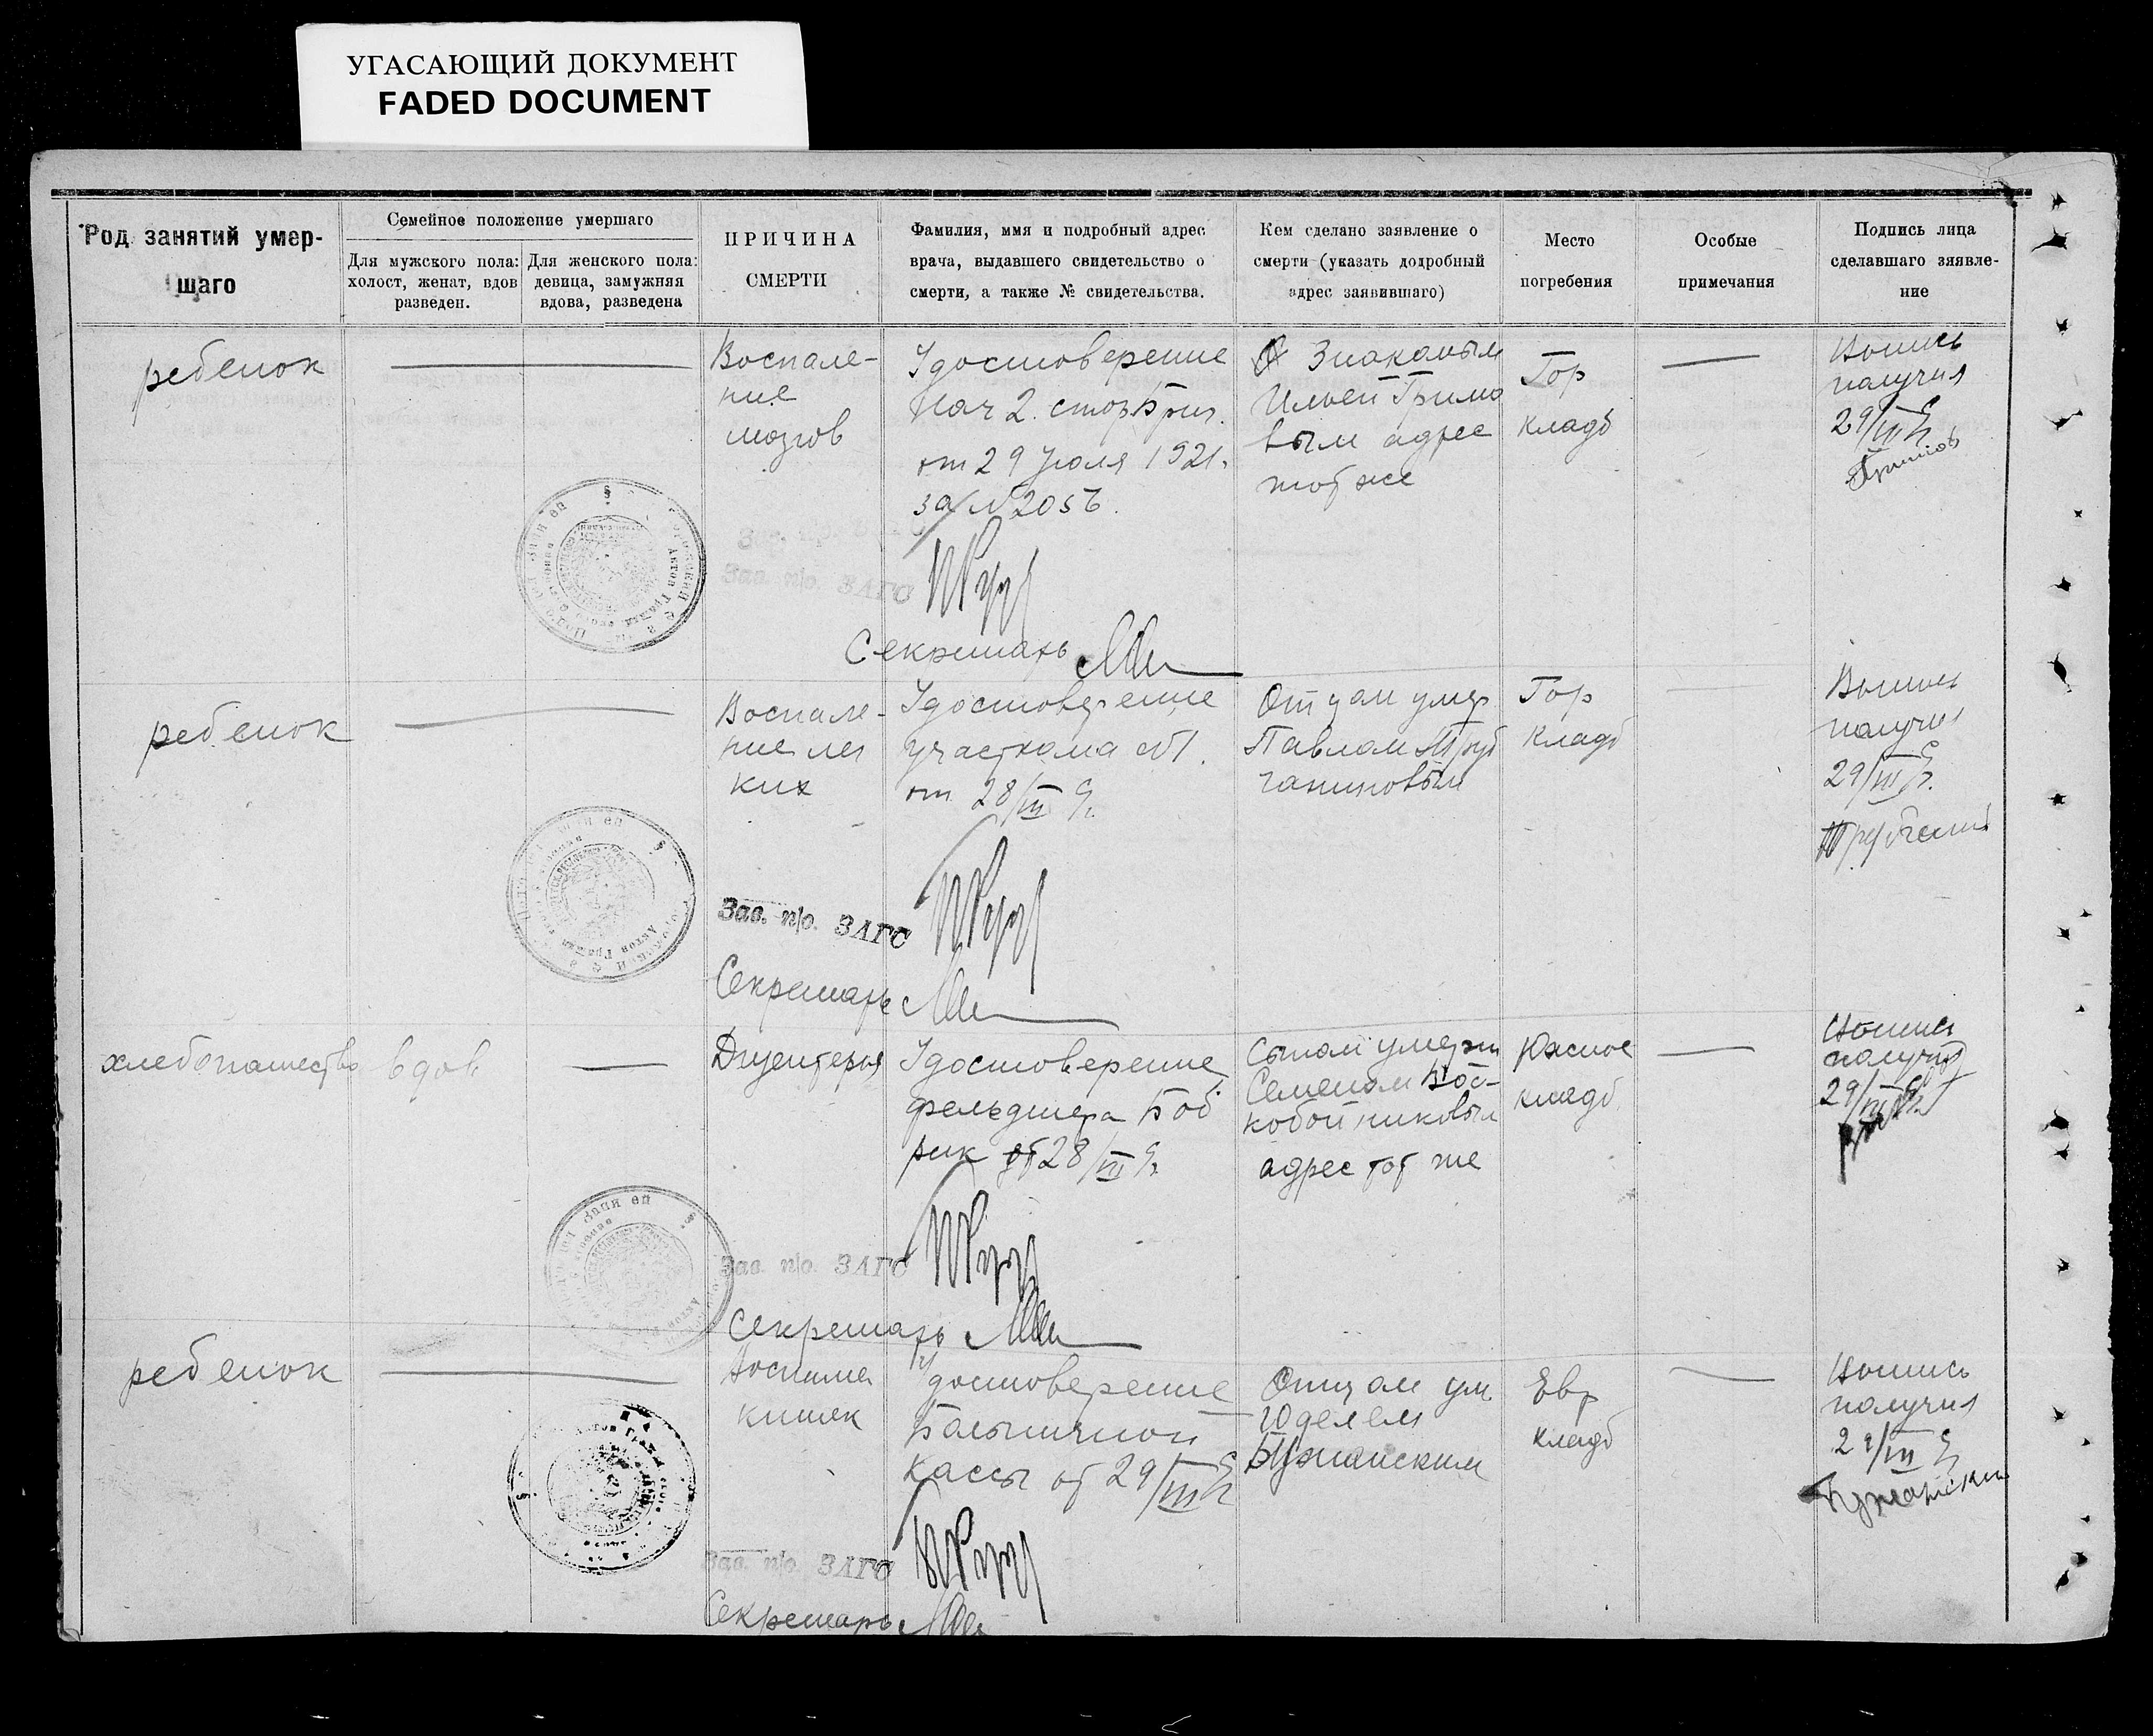 УГАСАЮЩИЙ ДОКУМЕНТ
FADED DOCUMENT
Род занятий умер-
шаго
Семейное положение умершаго
Для мужского пола:
холост, женат, вдов
разведен.
Для женского пола:
девица, замужняя
вдова, разведена
ПРИЧИНА
СМЕРТИ
Фамилия, имя и подробный адрес
врача, выдавшего свидетельство о
смерти, а также № свидетельства.
Кем сделано заявление о
смерти (указать додробный
адрес заявившаго)
Место
погребения
Особые
примечания
Подпись лица
сделавшаго зяявле-
ние
ребенок
Воспале-
ние
мозгов
Удостоверение
Нач 2.
от 29 Июля 1921.
за №2056.
Знакомым
Ильей Гримо
вым адрес
тот же
Гор
кладб
получил
29/III
Зав. п/о. ЗАГС
Секретарь
ребенок
Воспале-
ние лег
ких
Удостоверение
участкома №1.
от 28/III
Отцом умер
Павлом Труб
Гор
кладб
получил
29/III
Зав. п/о. ЗАГС
Секретарь
хлебопашество
вдов
Дизентерия
Удостоверение
фельдшера Боб
рик от 28/III
Сыном умерш
Семеном Вос-
кобойниковым
адрес тот же
Южное
кладб
получил
29/III
Зав. п/о. ЗАГС
Секретарь
ребенок
кишек
Удостоверение
Больничной
Кассы от 29/III
Отцом ум.
Юделем
Бужанским
Евр
кладб
получил
29/III
Бужански
Зав. п/о. ЗАГС
Секретарь